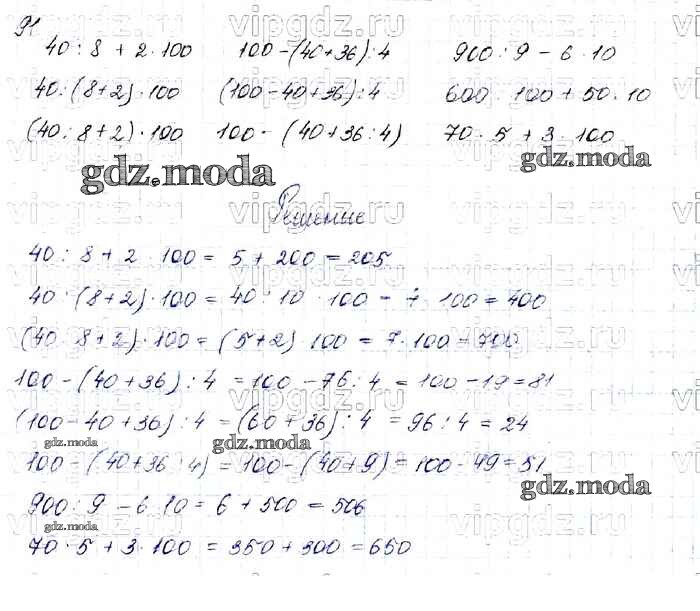 91
40 : 8 + 2 · 100 100 - (40 + 36) : 4 900 : 9 - 6 · 10
40 : (8 + 2) · 100 (100 - 40 + 36) : 4 600 : 100 + 50 · 10
(40 : 8 + 2) · 100 100 - (40 + 36 : 4) 70 · 5 + 3 · 100
gdz.moda gdz.moda
Решение
40 : 8 + 2 · 100 = 5 + 200 = 205
40 : (8 + 2) · 100 = 40 : 10 · 100 = 4 · 100 = 400
(40 : 8 + 2) · 100 = (5 + 2) · 100 = 7 · 100 = 700
100 - (40 + 36) : 4 = 100 - 76 : 4 = 100 - 19 = 81
(100 - 40 + 36) : 4 = (60 + 36) : 4 = 96 : 4 = 24
gdz.moda gdz.moda
100 - (40 + 36 : 4) = 100 - (40 + 9) = 100 - 49 = 51
gdz.moda
900 : 9 - 6 · 10 = 6 + 500 = 506
gdz.moda
70 · 5 + 3 · 100 = 350 + 300 = 650
vipgdz.ru